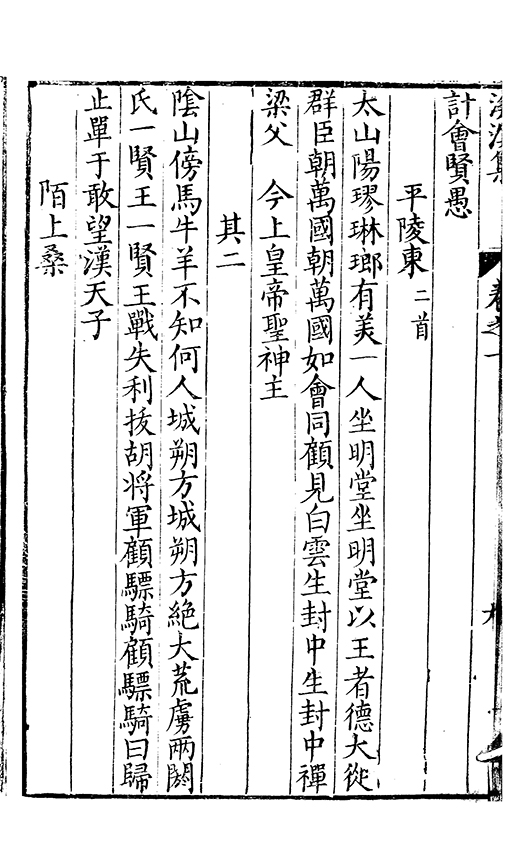 計會賢愚
平陵東二首
太山陽璆琳瑯有美一人坐明堂坐明堂以王者德大從
群臣朝萬國朝萬國如會同顧見白雲生封中生封中禪
梁父 今上皇帝聖神主
其二
陰山傍馬牛羊不知何人城朔方城朔方絶大荒虜兩閼
氏一賢王一賢王戰失利拔胡将軍顧驃騎顧驃騎曰歸
止單于敢望漢天子
陌上桑